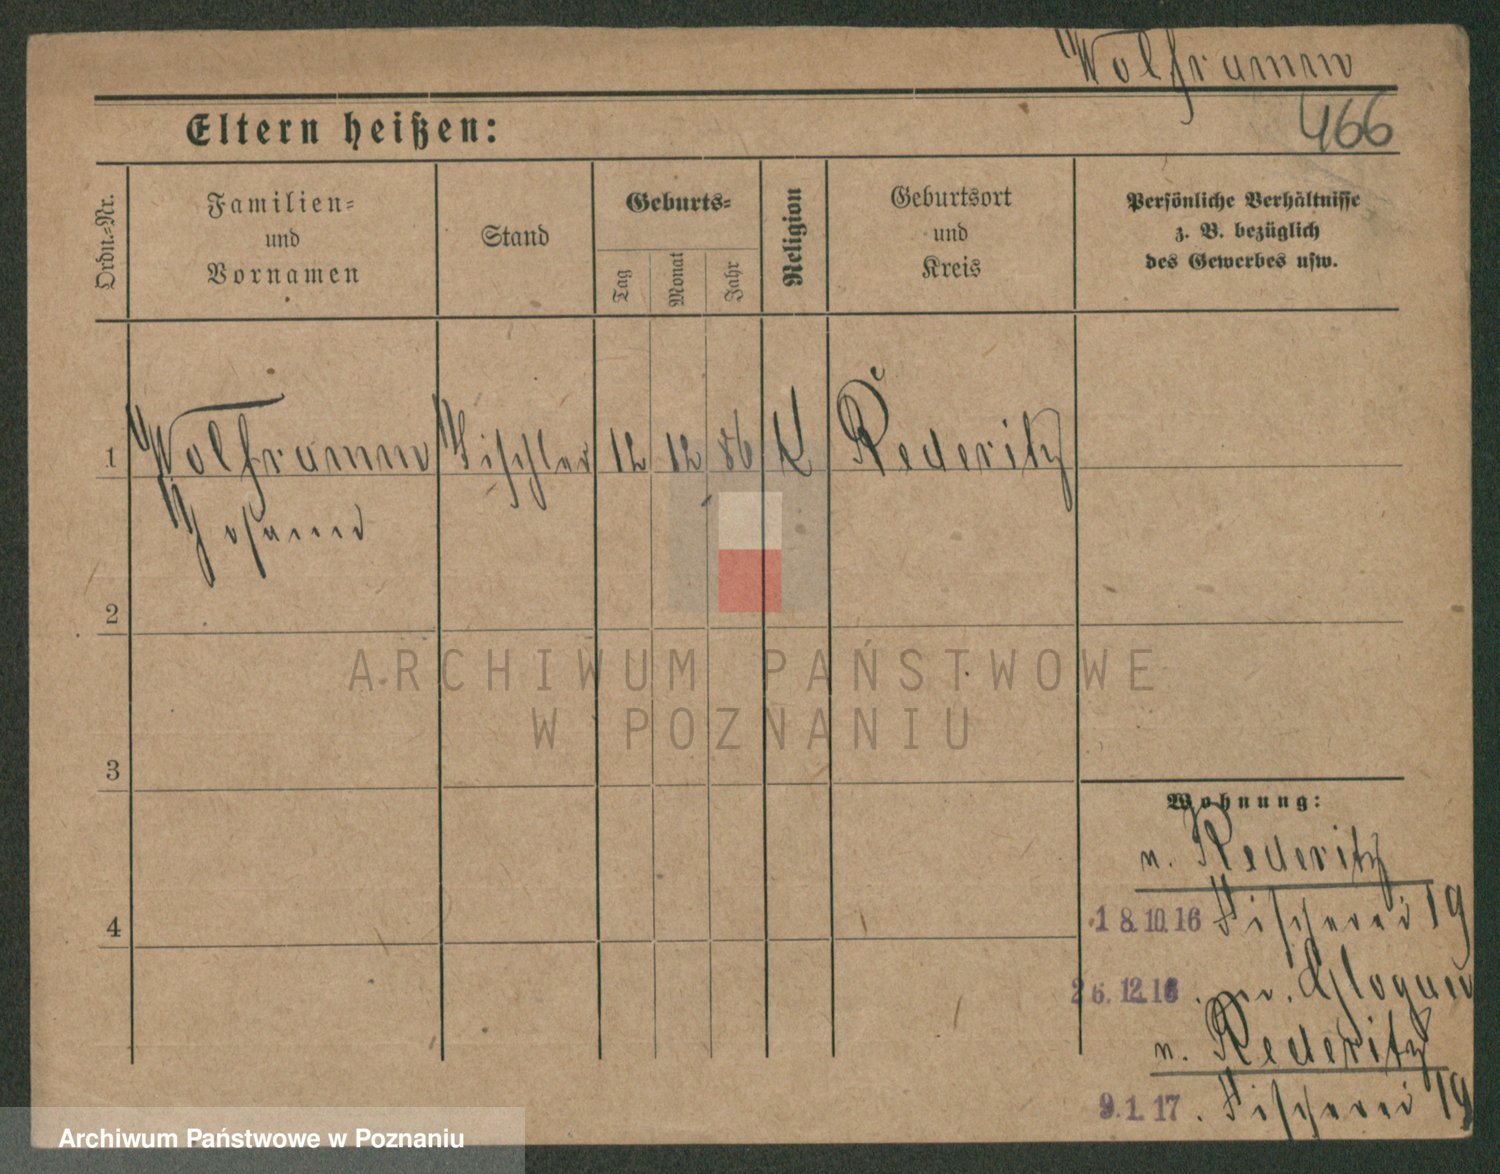 Wolframm
466
Eltern heißen:
Ordn.-Nr.
Familien-
und
Vornamen
Stand
Geburts-
Tag
Monat
Jahr
Religion
Geburtsort
und
Kreis
Persönliche Verhältnisse
z. B. bezüglich
des Gewerbes usw.
1 Wolframm Tischler 12 12 86 K Rederitz
2
3
4
Wohnung:
n. Rederitz
18.10.16 Fischerei 19
26.12.16 Glogau
n. Rederitz
9.1.17. Fischerei 19
ARCHIWUM PAŃSTWOWE
W POZNANIU
Archiwum Państwowe w Poznaniu